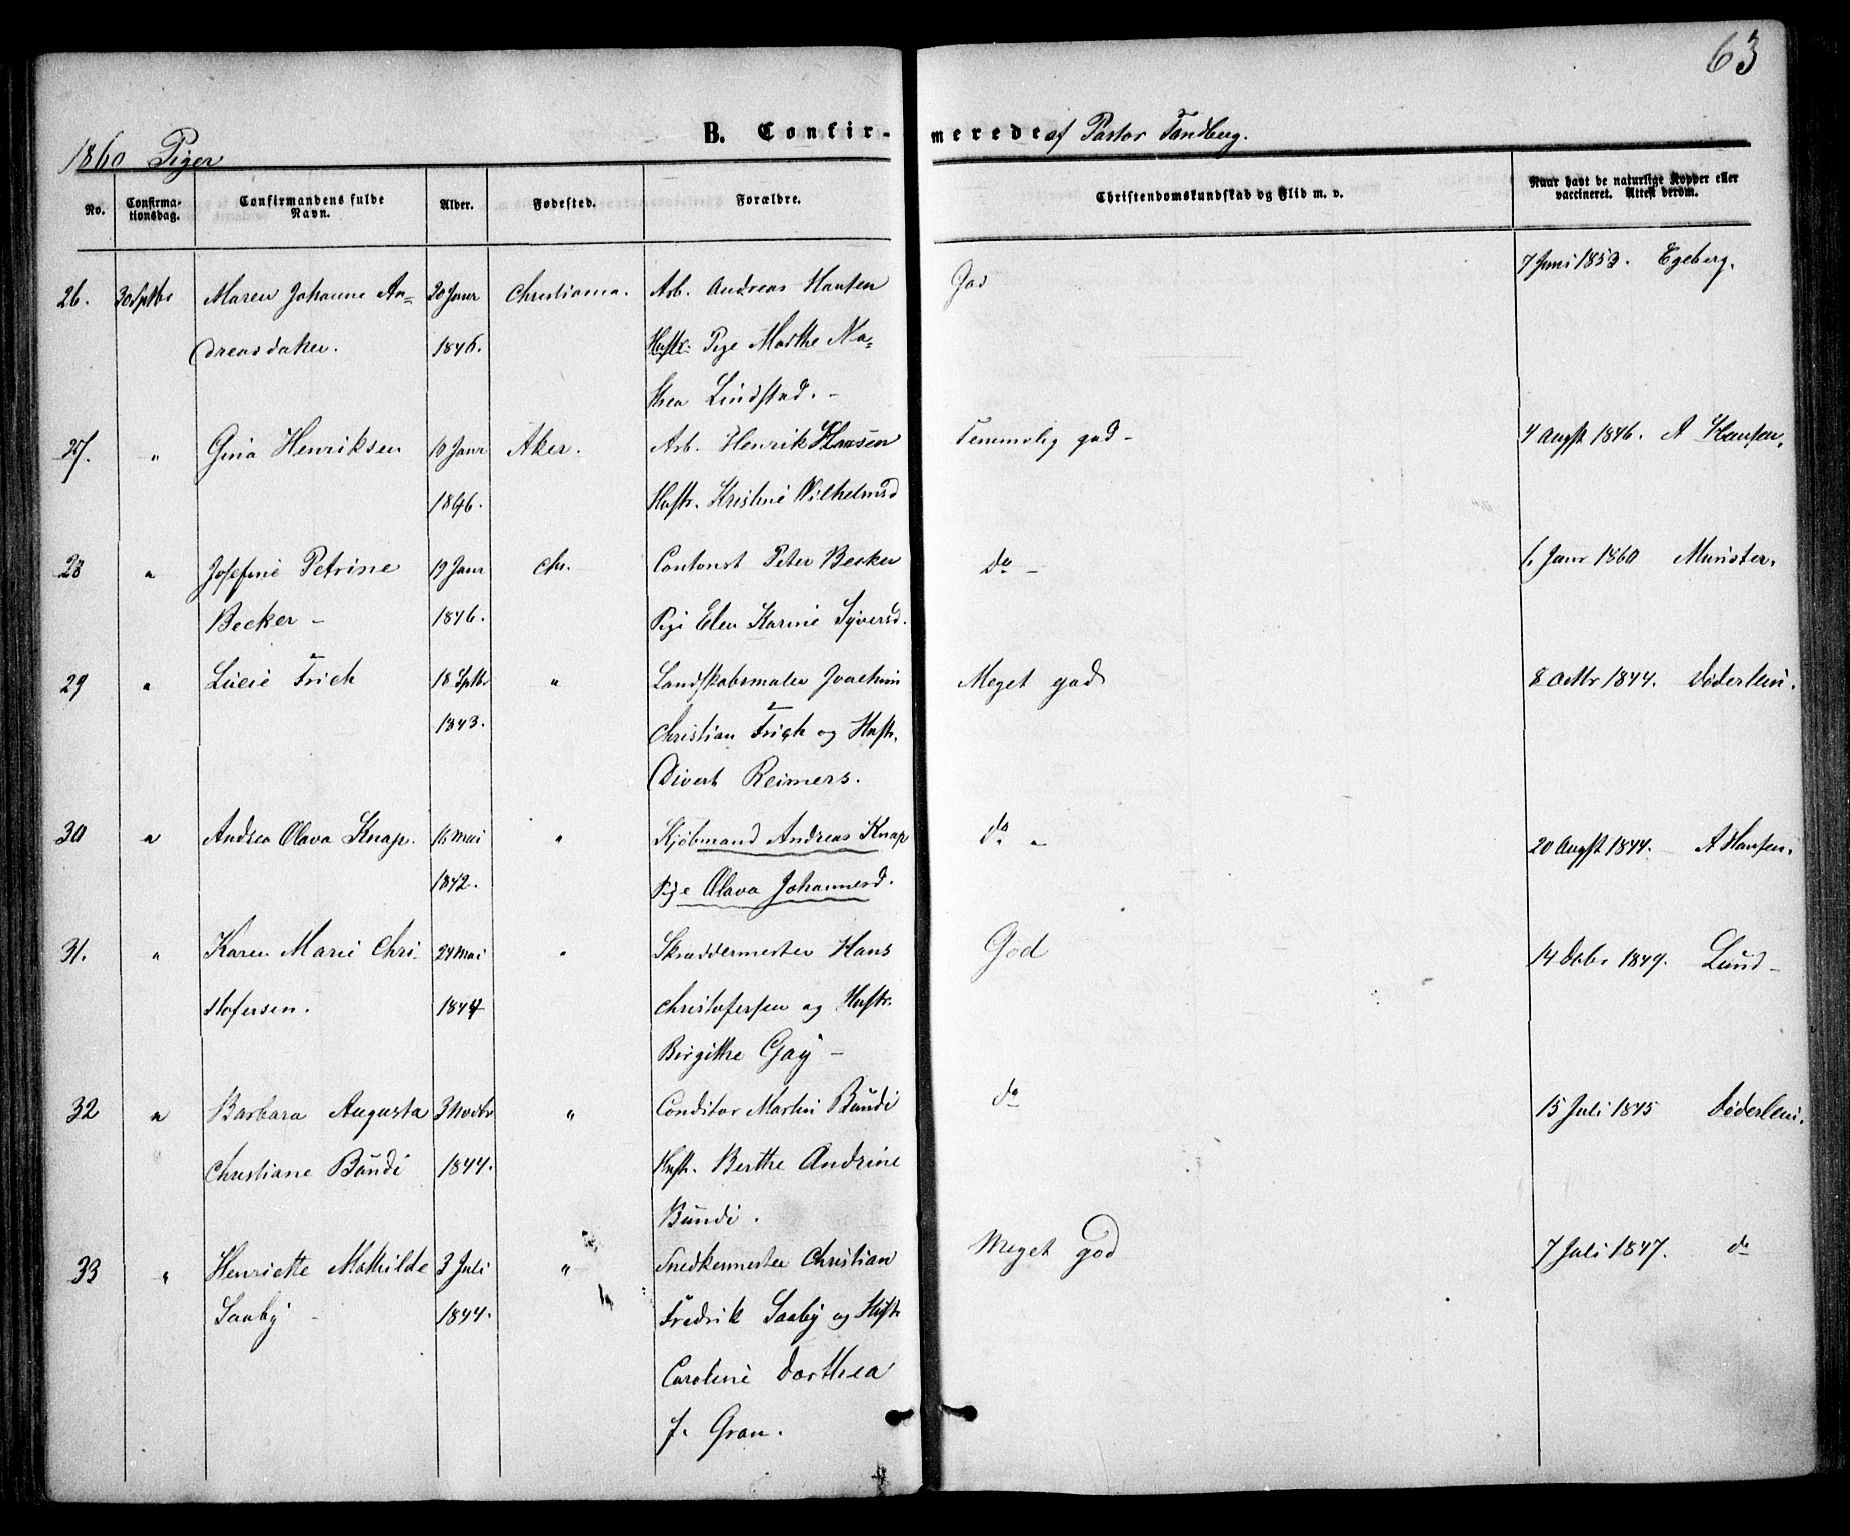 63
B. Confir- merede af Pastor Tandberg.
1860 Piger
No. Confirma-tionsdag. Confirmandens fulde Navn. Alder. Fødested. Forældre. Christendomskundskab og Flid m. v. Naar havt de naturlige Kopper eller vaccineret. Attest derom.
26. 30 Septbr Maren Johanne An- 20 Janr Christiania. Arb. Andreas Hansen God 7 Juni 1853. Egeberg.
dreasdatter. 1846. Hustr: Pige Marthe Ma-
thea Lindstad. -
27. " Gina Henriksen 10 Janr Aker. Arb. Henrik Hansen Temmelig god - 4 Augst 1846. A Hansen.
1846. Hustr. Kristine Wilhelmsd
28 " Josefine Petrine 19 Janr Chr. Contorist Peter Becker do - 6 Janr 1860 Münster.
Becker - 1846. Pige Elen Karine Syversd.
29 " Lucie Frich 18 Sptbr " Landskabsmaler Joachim Meget god 8 Octbr 1844. Døderlein.
1843. Christian Frich og Hustr.
Divert Reimers.
30 " Andrea Olava Knap. 16 Mai " Kjøbmand Andreas Knap do " 20 Augst 1844. A Hansen.
1842. Pige Olava Johannesd.
31. " Karen Marie Chri- 24 Mai " Skræddermester Hans God 14 Decbr 1847. Lund -
stofersen. 1844 Christofersen og Hustr.
Birgithe Gay -
32 " Barbara Augusta 3 Novbr " Conditor Martin Bundi do 15 Juli 1845 Døderlein.
Christiane Bundi 1844. Hustr. Berthe Andrine
Bundi.
33 " Henriette Mathilde 3 Juli " Snedkermester Christian Meget god 7 Juli 1847. do
Saaby - 1844. Fredrik Saaby og Hustr
Caroline Dorthea
f. Gran.